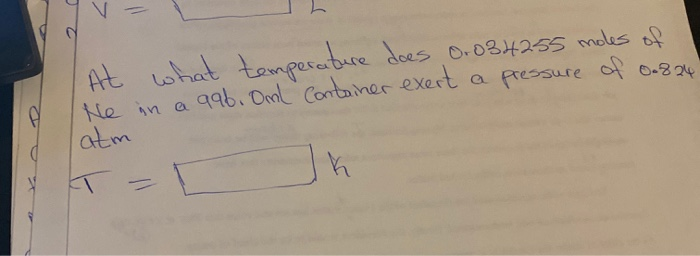 V = L
At what temperature does 0.034255 moles of
Ne in a 996.0ml Container exert a pressure of 0.824
atm
T = K